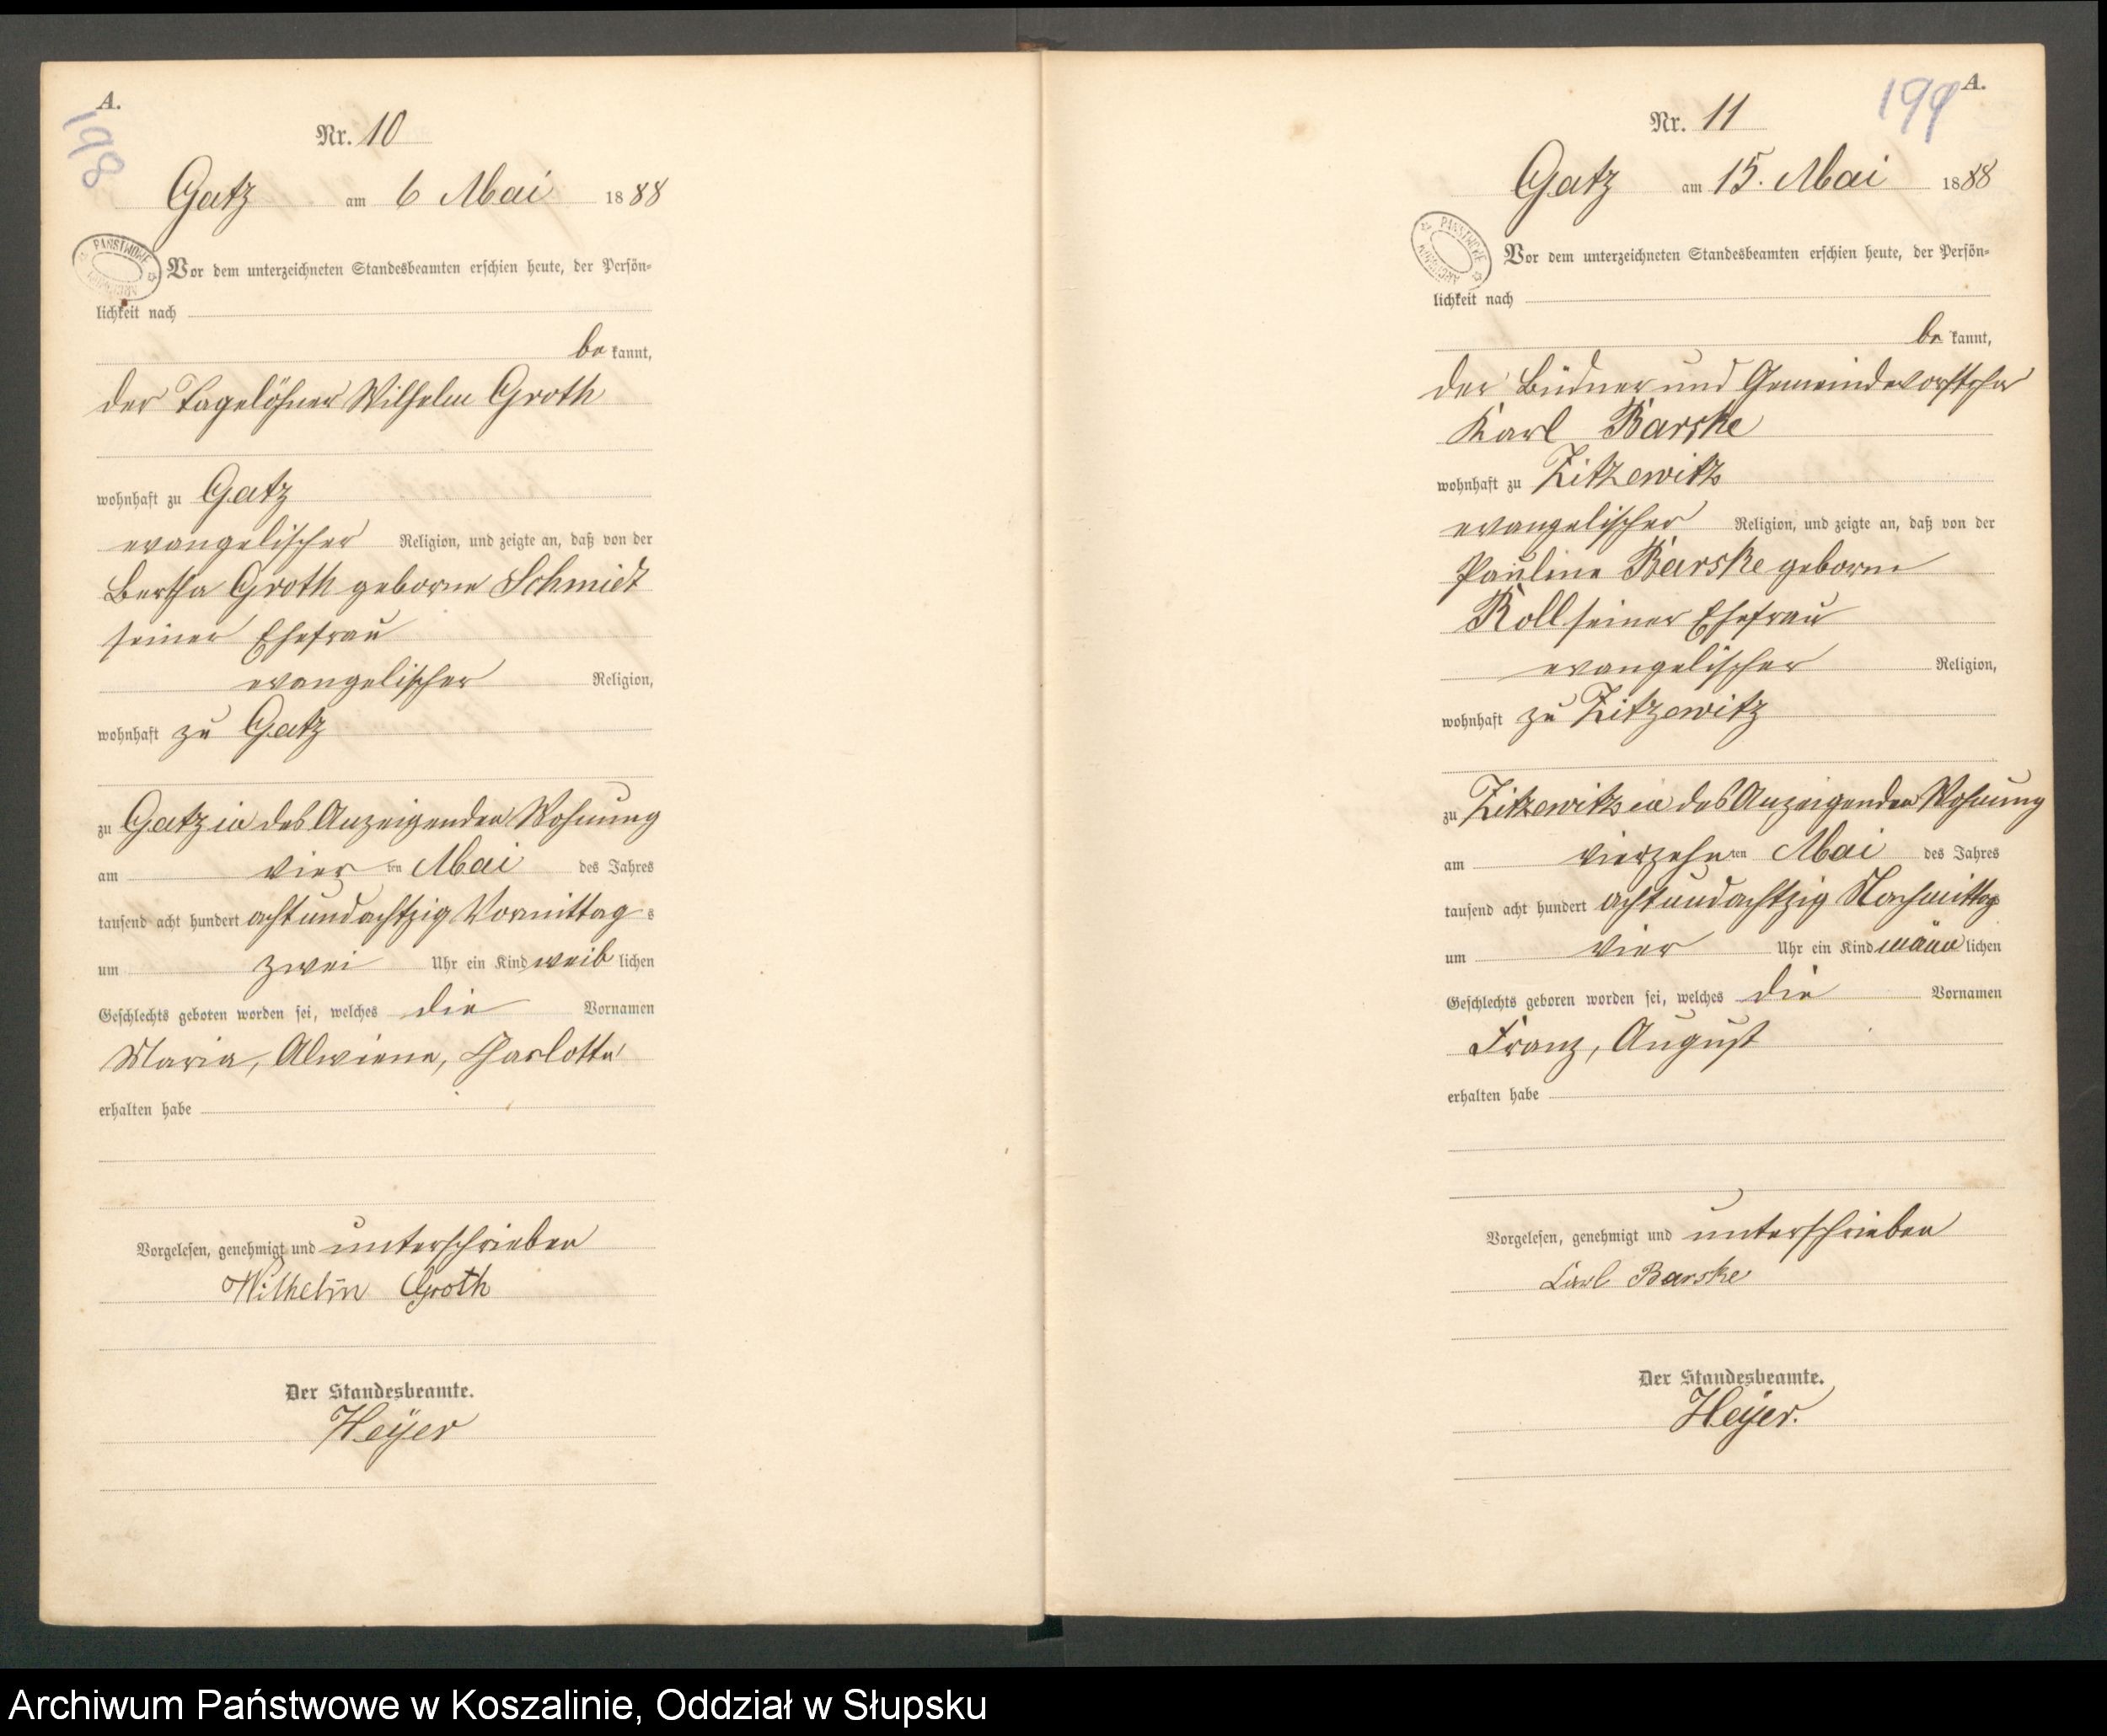 A.
198
Nr. 10
Gatz am 6 Mai 1888
PAŃSTWOWE
ARCHIWUM
Vor dem unterzeichneten Standesbeamten erschien heute, der Persön-
lichkeit nach
be kannt,
der Tagelöhner Wilhelm Groth
wohnhaft zu Gatz
evangelischer Religion, und zeigte an, daß von der
Bertha Groth geborne Schmidt
seiner Ehefrau
evangelischer Religion,
wohnhaft zu Gatz
zu Gatz in des Anzeigenden Wohnung
am vier ten Mai des Jahres
tausend acht hundert achtundachtzig Vormittag s
um zwei Uhr ein Kind weib lichen
Geschlechts geboren worden sei, welches die Vornamen
Maria, Alwiene, Charlotte
erhalten habe
Vorgelesen, genehmigt und unterschrieben
Wilhelm Groth
Der Standesbeamte.
Heyer
A.
199
Nr. 11
Gatz am 15. Mai 1888
PAŃSTWOWE
ARCHIWUM
Vor dem unterzeichneten Standesbeamten erschien heute, der Persön-
lichkeit nach
be kannt,
der Büdner und Gemeindevorsteher
Karl Barske
wohnhaft zu Zitzewitz
evangelischer Religion, und zeigte an, daß von der
Pauline Barske geborne
Roll seiner Ehefrau
evangelischer Religion,
wohnhaft zu Zitzewitz
zu Zitzewitz in des Anzeigenden Wohnung
am vierzehn ten Mai des Jahres
tausend acht hundert achtundachtzig Nachmittags
um vier Uhr ein Kind männ lichen
Geschlechts geboren worden sei, welches die Vornamen
Franz, August
erhalten habe
Vorgelesen, genehmigt und unterschrieben
Carl Barske
Der Standesbeamte.
Heyer.
Archiwum Państwowe w Koszalinie, Oddział w Słupsku